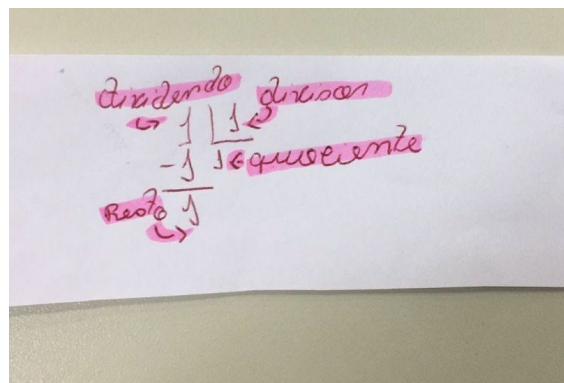 dividendo divisor
↳ 1 | 1 ↵
-1 1 ← quociente
Resto 1